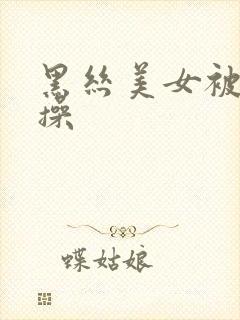 黑丝美女被
操
蝶姑娘